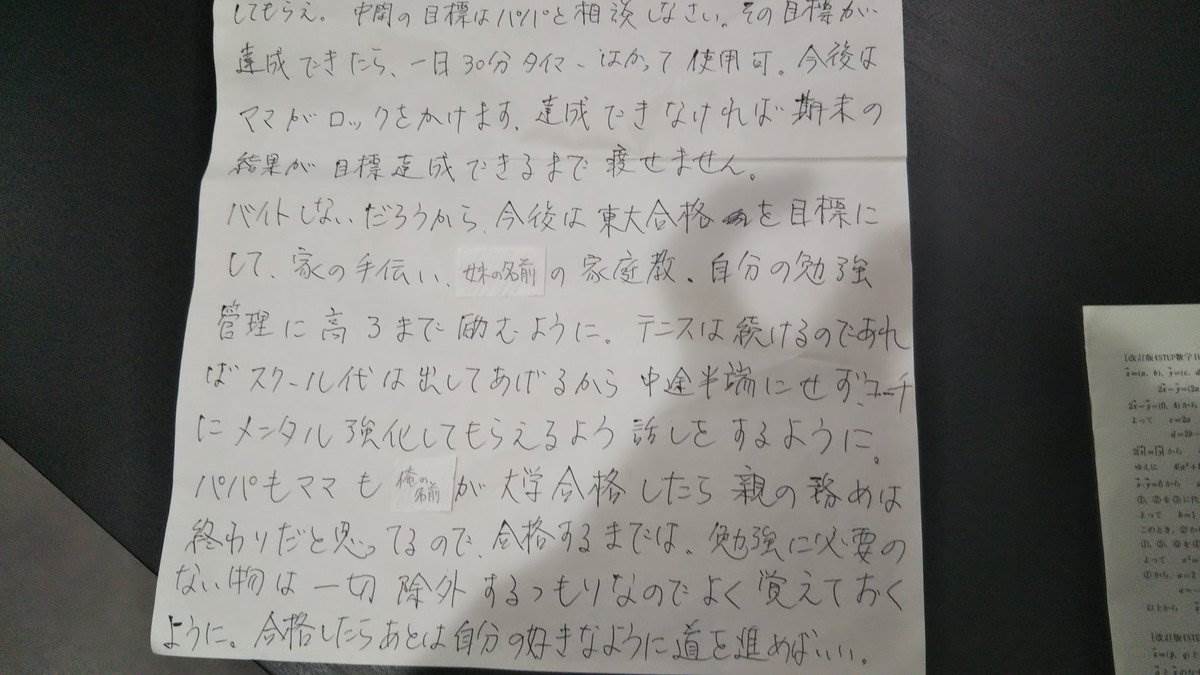 してもらえ。中間の目標はパパと相談しなさい。その目標が
達成できたら、一日30分タイマーはかって使用可。今後は
ママがロックをかけます。達成できなければ期末の
結果が目標達成できるまで渡せません。
バイトしないだろうから、今後は東大合格を目標に
して、家の手伝い、妹の名前の家庭教、自分の勉強
管理に高3まで励むように。テニスは続けるのであれ
ばスクール代は出してあげるから中途半端にせず、コーチ
にメンタル強化してもらえるよう話しをするように。
パパもママも俺の名前が大学合格したら親の務めは
終わりだと思ってるので、合格するまでは、勉強に必要の
ない物は一切除外するつもりなのでよく覚えておく
ように。合格したらあとは自分の好きなように道を進めばいい。
よって
ゆえに
よって
このとき、
よって